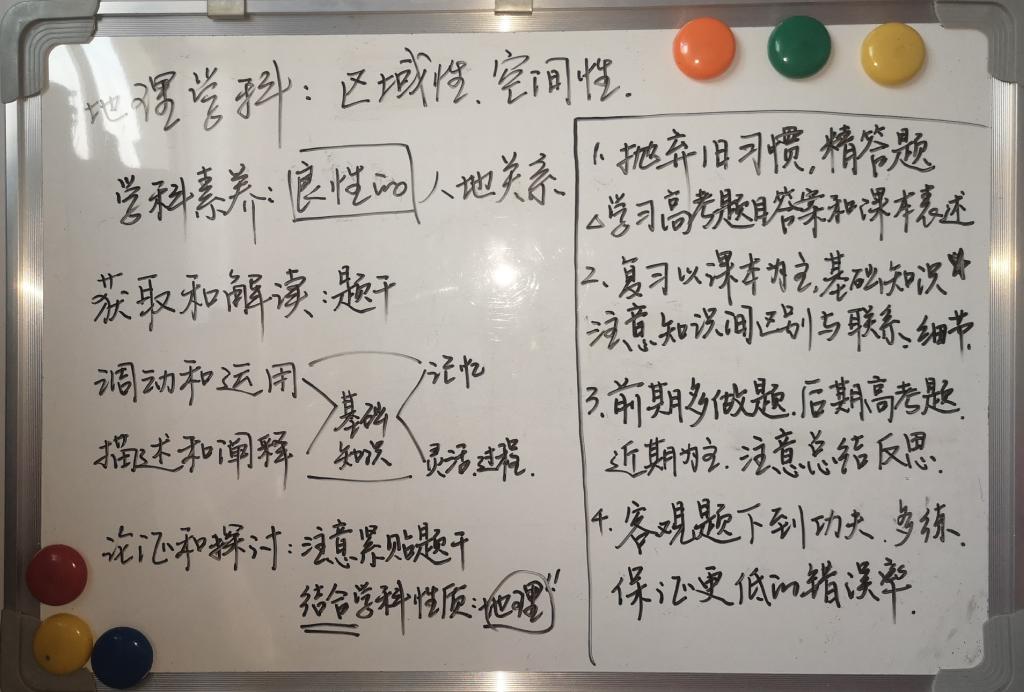 地理学科：区域性、空间性.
学科素养：良性的 人地关系
获取和解读：题干
调动和运用 记忆
基础
知识
描述和阐释 灵活、过程.
论证和探讨：注意紧贴题干
结合学科性质：地理"
1. 抛弃旧习惯，精答题
△学习高考题目答案和课本表述
2. 复习以课本为主，基础知识
注意知识间区别与联系、细节.
3. 前期多做题.后期高考题.
近期为主.注意总结反思.
4. 客观题下到功夫.多练.
保证更低的错误率.